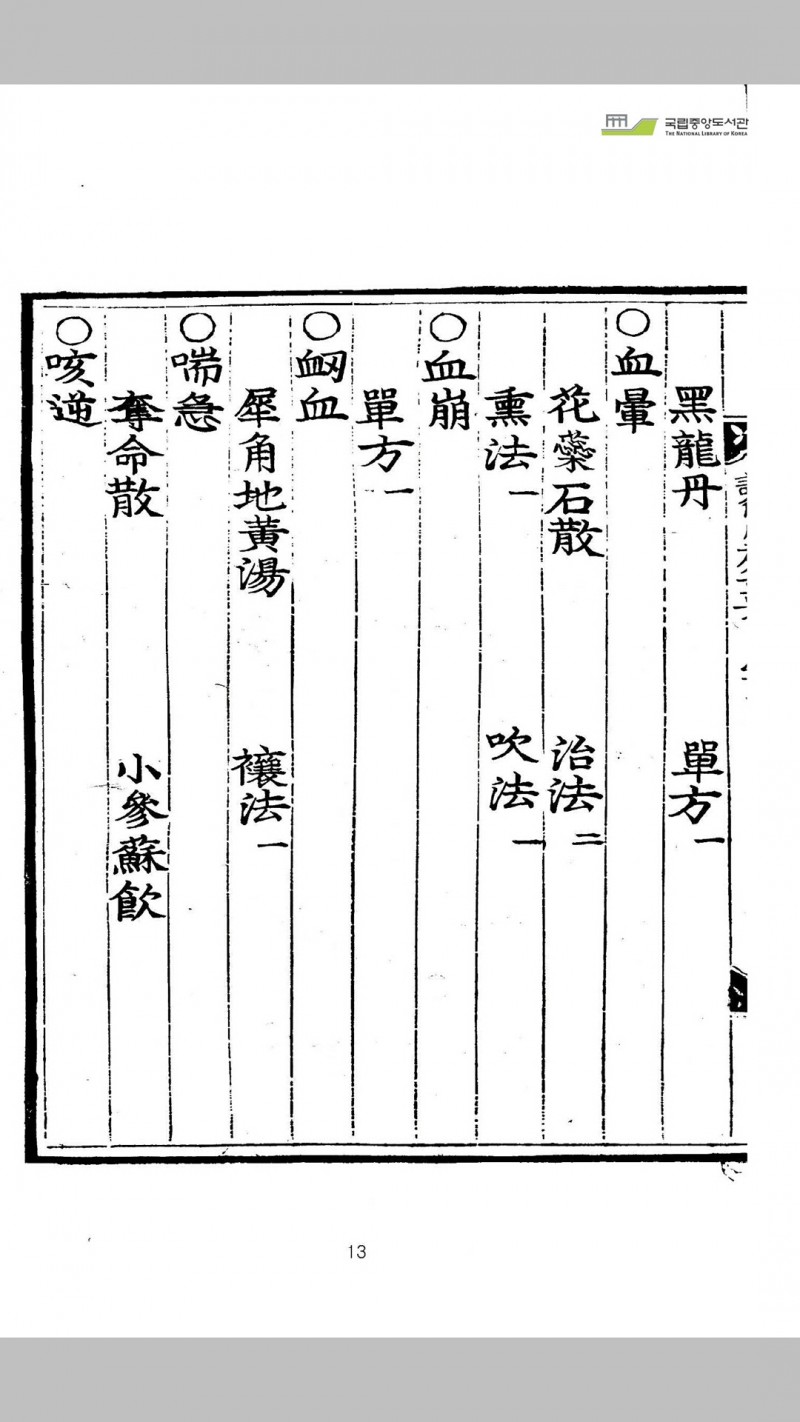 국립중앙도서관
THE NATIONAL LIBRARY OF KOREA
黑龍丹 單方一
○血暈
花蘂石散 治法二
熏法一 吹法一
○血崩
單方一
○衂血
犀角地黃湯 禳法一
○喘急
奪命散 小參蘇飮
○咳逆
13